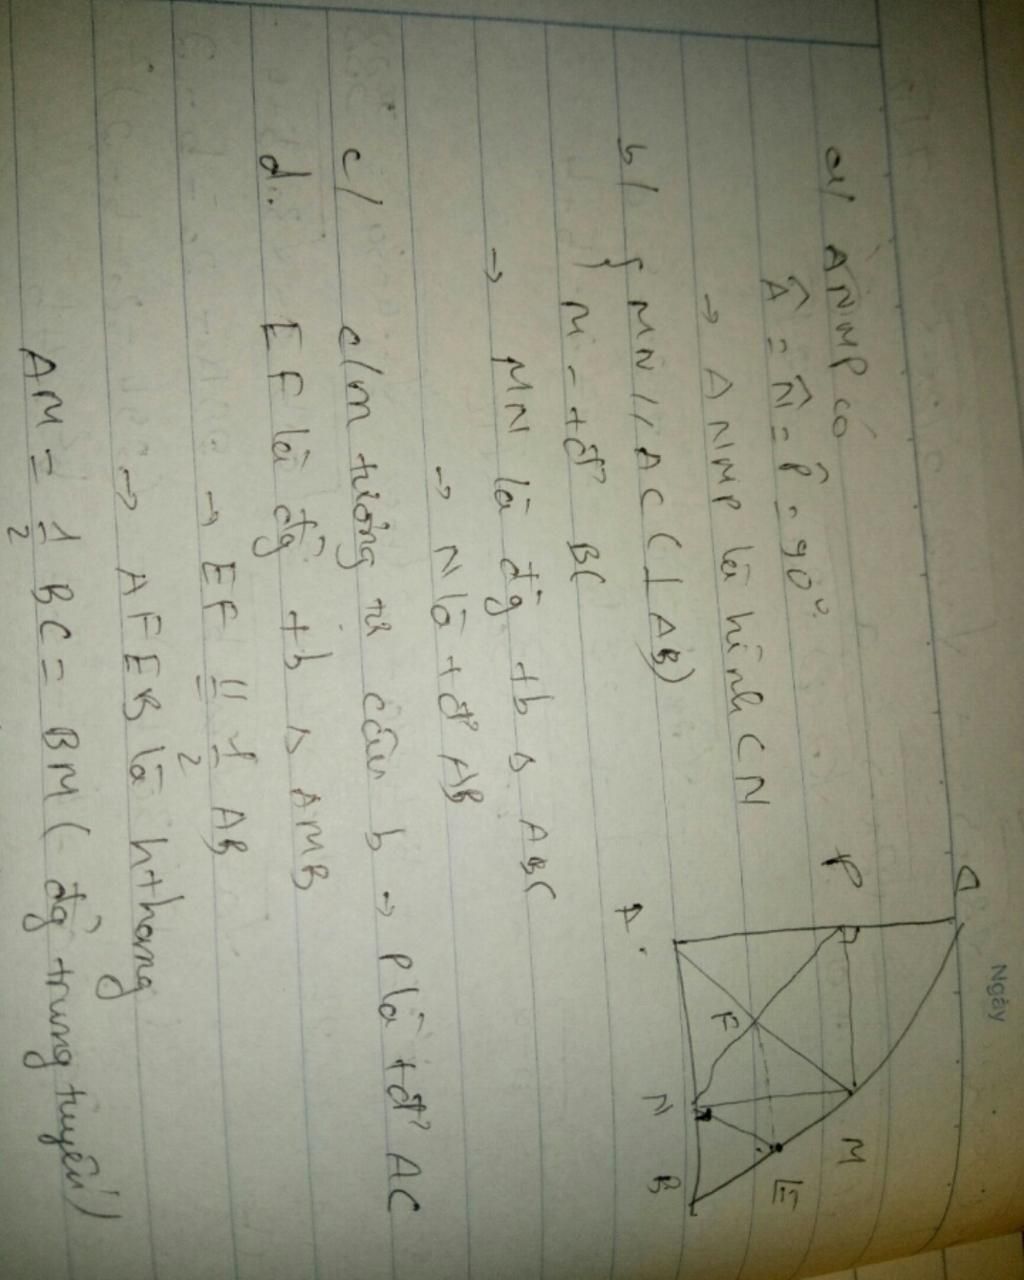 Ngày
a/ ANMP có
Â = N̂ = P̂ = 90°
→ ANMP là hình CN
b/ { MN // AC (⊥ AB)
M - tđ BC
→ MN là đg tb Δ ABC
→ N là tđ AB
c/ c/m tương tự câu b → P là tđ AC
d. EF là đg tb Δ AMB
→ EF // = 1/2 AB
→ AFEB là hthang
AM = 1/2 BC = BM ( đg trung tuyến )
C
P
A
F
M
N
E
B